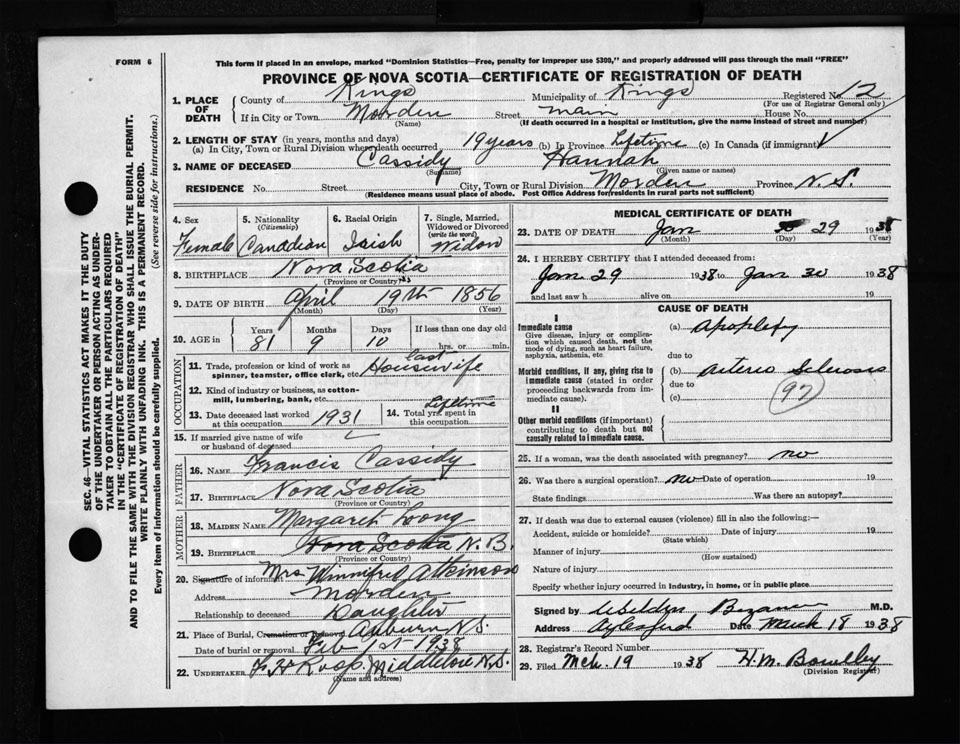 FORM 6
This form if placed in an envelope, marked "Dominion Statistics—Free, penalty for improper use $300," and properly addressed will pass through the mail "FREE"
PROVINCE OF NOVA SCOTIA—CERTIFICATE OF REGISTRATION OF DEATH
1. PLACE OF DEATH County of Kings Municipality of Kings Registered No. 12
(For use of Registrar General only)
If in City or Town Morden Street main House No.
(Name) (If death occurred in a hospital or institution, give the name instead of street and number)
2. LENGTH OF STAY (in years, months and days)
(a) In City, Town or Rural Division where death occurred 19 years (b) In Province Lifetime (c) In Canada (if immigrant)
3. NAME OF DECEASED Cassidy Hannah
(Surname) (Given name or names)
RESIDENCE No. Street City, Town or Rural Division Morden Province N.S.
(Residence means usual place of abode. Post Office Address for residents in rural parts not sufficient)
SEC. 46—VITAL STATISTICS ACT MAKES IT THE DUTY
OF THE UNDERTAKER OR PERSON ACTING AS UNDER-
TAKER TO OBTAIN ALL THE PARTICULARS REQUIRED
IN THE "CERTIFICATE OF REGISTRATION OF DEATH"
AND TO FILE THE SAME WITH THE DIVISION REGISTRAR WHO SHALL ISSUE THE BURIAL PERMIT.
WRITE PLAINLY WITH UNFADING INK. THIS IS A PERMANENT RECORD.
Every item of information should be carefully supplied. (See reverse side for instructions.)
4. Sex 5. Nationality 6. Racial Origin 7. Single, Married,
(Citizenship) Widowed or Divorced
(write the word)
Female Canadian Irish Widow
8. BIRTHPLACE Nova Scotia
(Province or Country)
9. DATE OF BIRTH April 19th 1856
(Month) (Day) (Year)
10. AGE in Years Months Days If less than one day old
81 9 10 hrs. or min.
OCCUPATION
11. Trade, profession or kind of work as last
spinner, teamster, office clerk, etc. Housewife
12. Kind of industry or business, as cotton-
mill, lumbering, bank, etc.
13. Date deceased last worked 14. Total yrs. spent in Lifetime
at this occupation 1931 this occupation
15. If married give name of wife
or husband of deceased
FATHER
16. NAME Francis Cassidy
17. BIRTHPLACE Nova Scotia
(Province or Country)
MOTHER
18. MAIDEN NAME Margaret Loong
19. BIRTHPLACE Nova Scotia N.B.
(Province or Country)
20. Signature of informant Mrs Winnifred Atkinson
Address Morden
Relationship to deceased Daughter
21. Place of Burial, Cremation or Removal Auburn N.S.
Date of burial or removal Feb 1st 1938
22. UNDERTAKER F H Roop, Middleton N.S.
(Name and address)
MEDICAL CERTIFICATE OF DEATH
23. DATE OF DEATH Jan 29 1938
(Month) (Day) (Year)
24. I HEREBY CERTIFY that I attended deceased from:
Jan 29 1938 to Jan 30 1938
and last saw h alive on 19
CAUSE OF DEATH
I
Immediate cause (a) Apoplexy
Give disease, injury or complica-
tion which caused death, not the
mode of dying, such as heart failure,
asphyxia, asthenia, etc.
due to
Morbid conditions, if any, giving rise to (b) Arterio Sclerosis
immediate cause (stated in order due to
proceeding backwards from im- (c) 97
mediate cause).
II
Other morbid conditions (if important)
contributing to death but not
causally related to immediate cause.
25. If a woman, was the death associated with pregnancy? no
26. Was there a surgical operation? no Date of operation 19
State findings Was there an autopsy?
27. If death was due to external causes (violence) fill in also the following:—
Accident, suicide or homicide? Date of injury 19
(State which)
Manner of injury
(How sustained)
Nature of injury
Specify whether injury occurred in industry, in home, or in public place
Signed by M.D.
Address Aylesford Date March 18 1938
28. Registrar's Record Number
29. Filed Mch. 19 1938 H.M. Bowlby
(Division Registrar)